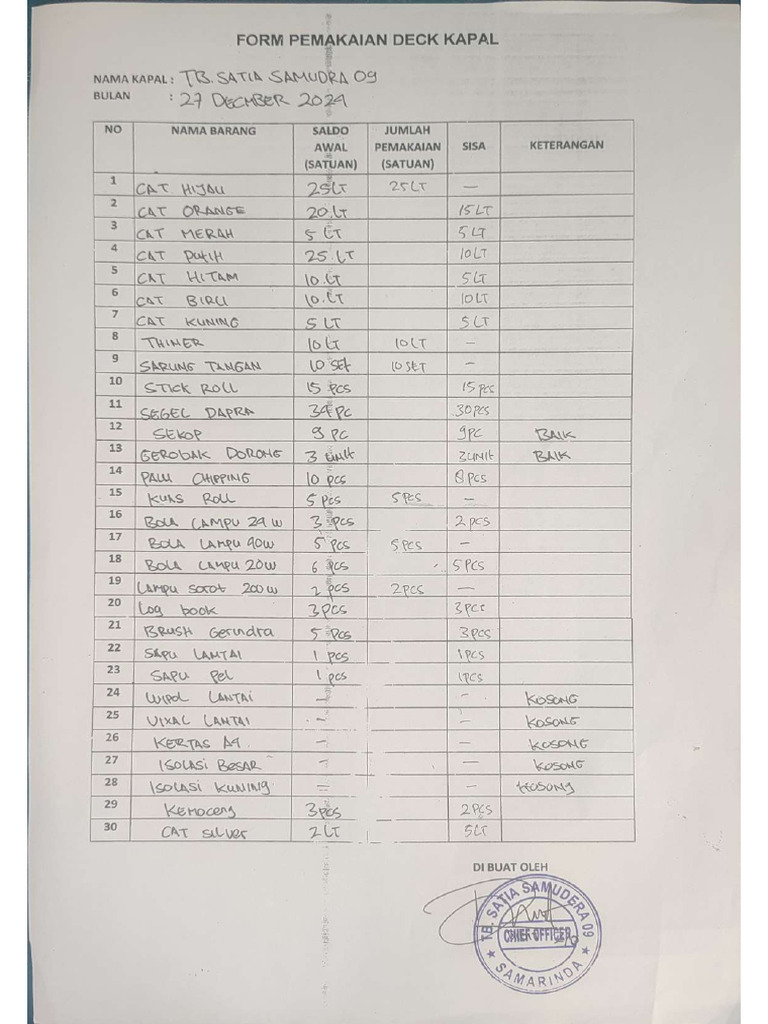 FORM PEMAKAIAN DECK KAPAL
NAMA KAPAL : TB. SATIA SAMUDRA 09
BULAN : 27 DECMBER 2024
NO NAMA BARANG SALDO AWAL (SATUAN) JUMLAH PEMAKAIAN (SATUAN) SISA KETERANGAN
1 CAT HIJAU 25LT 25LT —
2 CAT ORANGE 20.LT 15LT
3 CAT MERAH 5 LT 5 LT
4 CAT PUTIH 25.LT 10LT
5 CAT HITAM 10.LT 5LT
6 CAT BIRU 10.LT 10LT
7 CAT KUNING 5 LT 5 LT
8 THINER 10LT 10LT —
9 SARUNG TANGAN 10 SET 10 SET —
10 STICK ROLL 15 PCS 15 PCS
11 SEGEL DAPRA 34 PC 30PCS
12 SEKOP 9 PC 9PC BAIK
13 GEROBAK DORONG 3 UNIT 3UNIT BAIK
14 PALU CHIPPING 10 PCS 8 PCS
15 KUAS ROLL 5 PCS 5PCS —
16 BOLA LAMPU 24 W 3 PCS 2 PCS
17 BOLA LAMPU 40W 5 PCS 5 PCS —
18 BOLA LAMPU 20W 6 PCS 5 PCS
19 LAMPU SOROT 200W 2 PCS 2PCS —
20 Log book 3PCS 3PCS
21 BRUSH Gerindra 5 PCS 3PCS
22 SAPU LANTAI 1 PCS 1PCS
23 SAPU Pel 1 PCS 1PCS
24 WIPOL LANTAI — — KOSONG
25 VIXAL LANTAI — — KOSONG
26 KERTAS A4 — — KOSONG
27 ISOLASI BESAR — — KOSONG
28 ISOLASI KUNING — — KOSONG
29 Kemoceng 3PCS 2PCS
30 CAT SILVER 2LT 5LT
DI BUAT OLEH
TB. SATIA SAMUDERA 09
CHIEF OFFICER
SAMARINDA